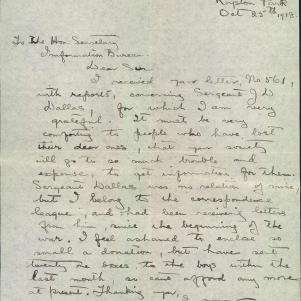 Royston Park
Oct 25th 1918
To the Hon Secretary
Information Bureau.
Dear Sir
I received your letter, No 561,
with reports, concerning Sergeant J D
Dallas, for which I am very
grateful. It must be very
comforting to people who have lost
their dear ones, that your society
will go to so much trouble and
expense, to get information for them.
Sergeant Dallas was no relation of mine,
but I belong to the correspondence
league, and had been receiving letters
from him, since the beginning of the
war. I feel ashamed to enclose so
small a donation, but have sent
twenty one boxes to the boys within the
last month so cant afford any more
at present. Thanking you,